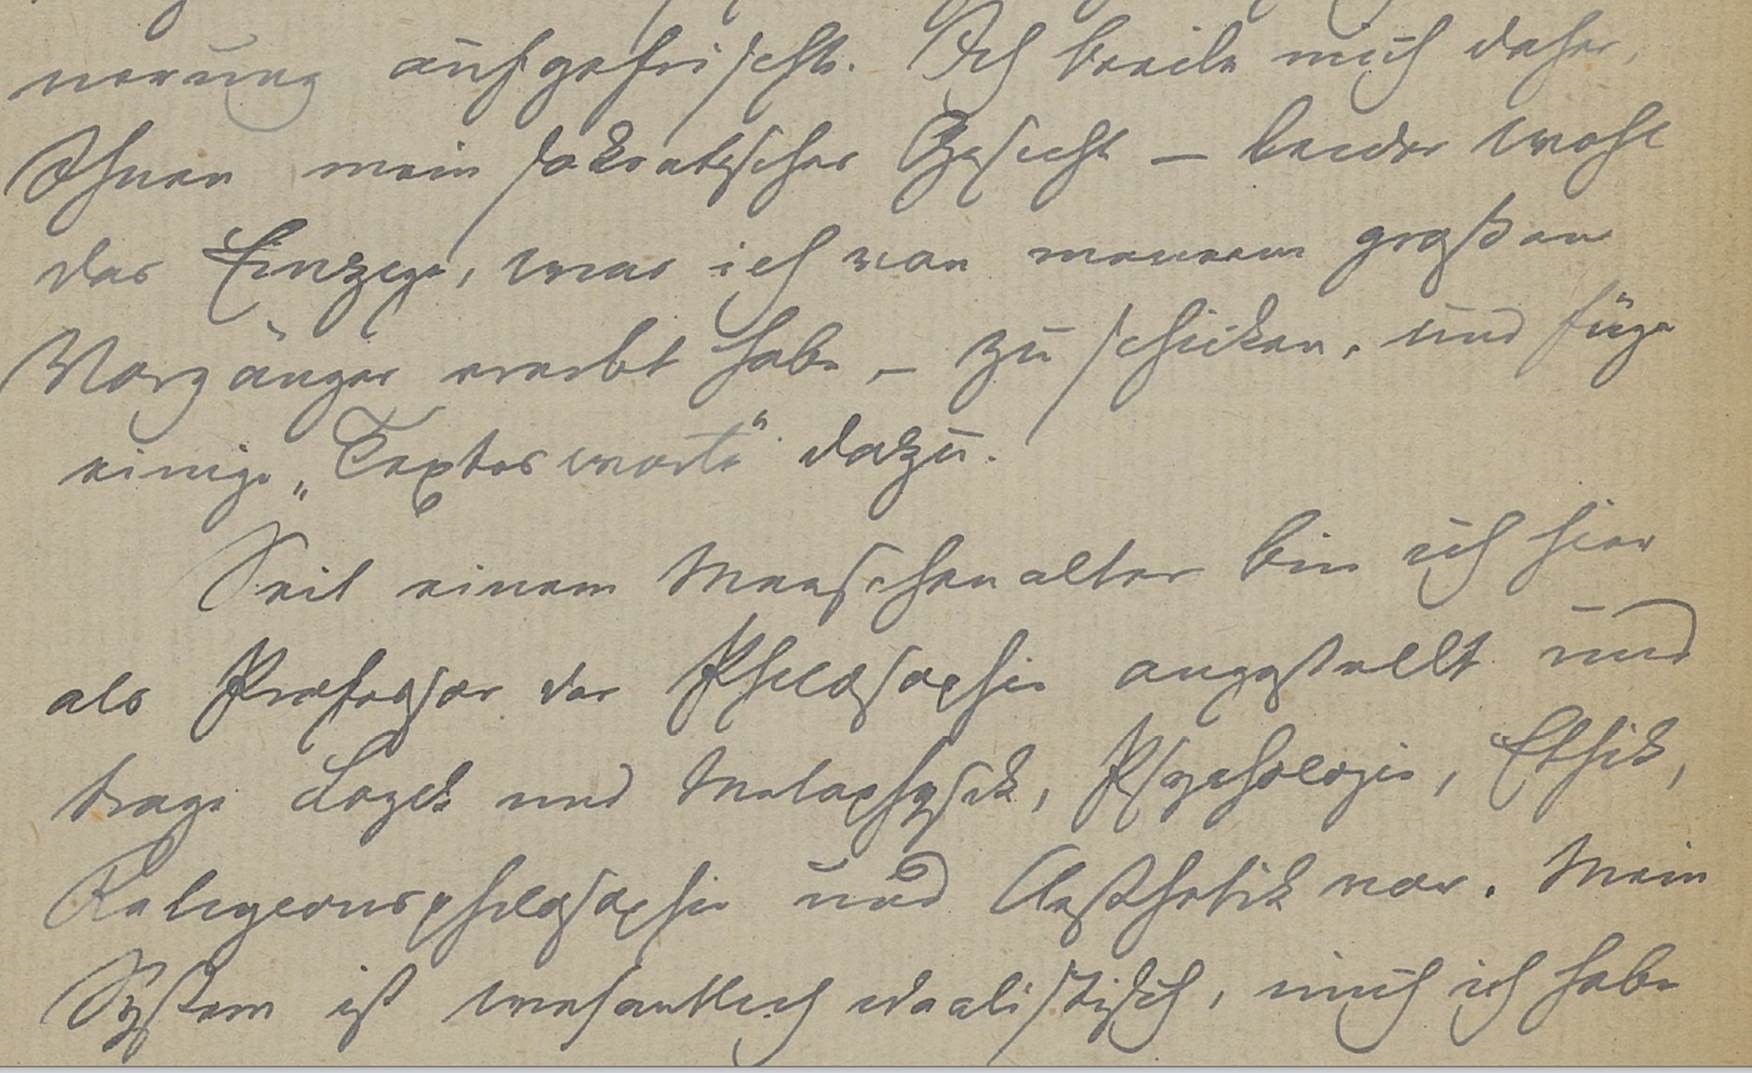 nerung aufgefrischt. Ich beeile mich daher,
Ihnen mein sokratisches Gesicht – leider wohl
das Einzige, was ich von meinem großen
Vorgänger ererbt habe, – zu schicken, und füge
einige „Textesworte" dazu.
Seit einem Menschenalter bin ich hier
als Professor der Philosophie angestellt und
trage Logik und Metaphysik, Psychologie, Ethik,
Religionsphilosophie und Aesthetik vor. Mein
System ist wesentlich idealistisch, auch ich habe